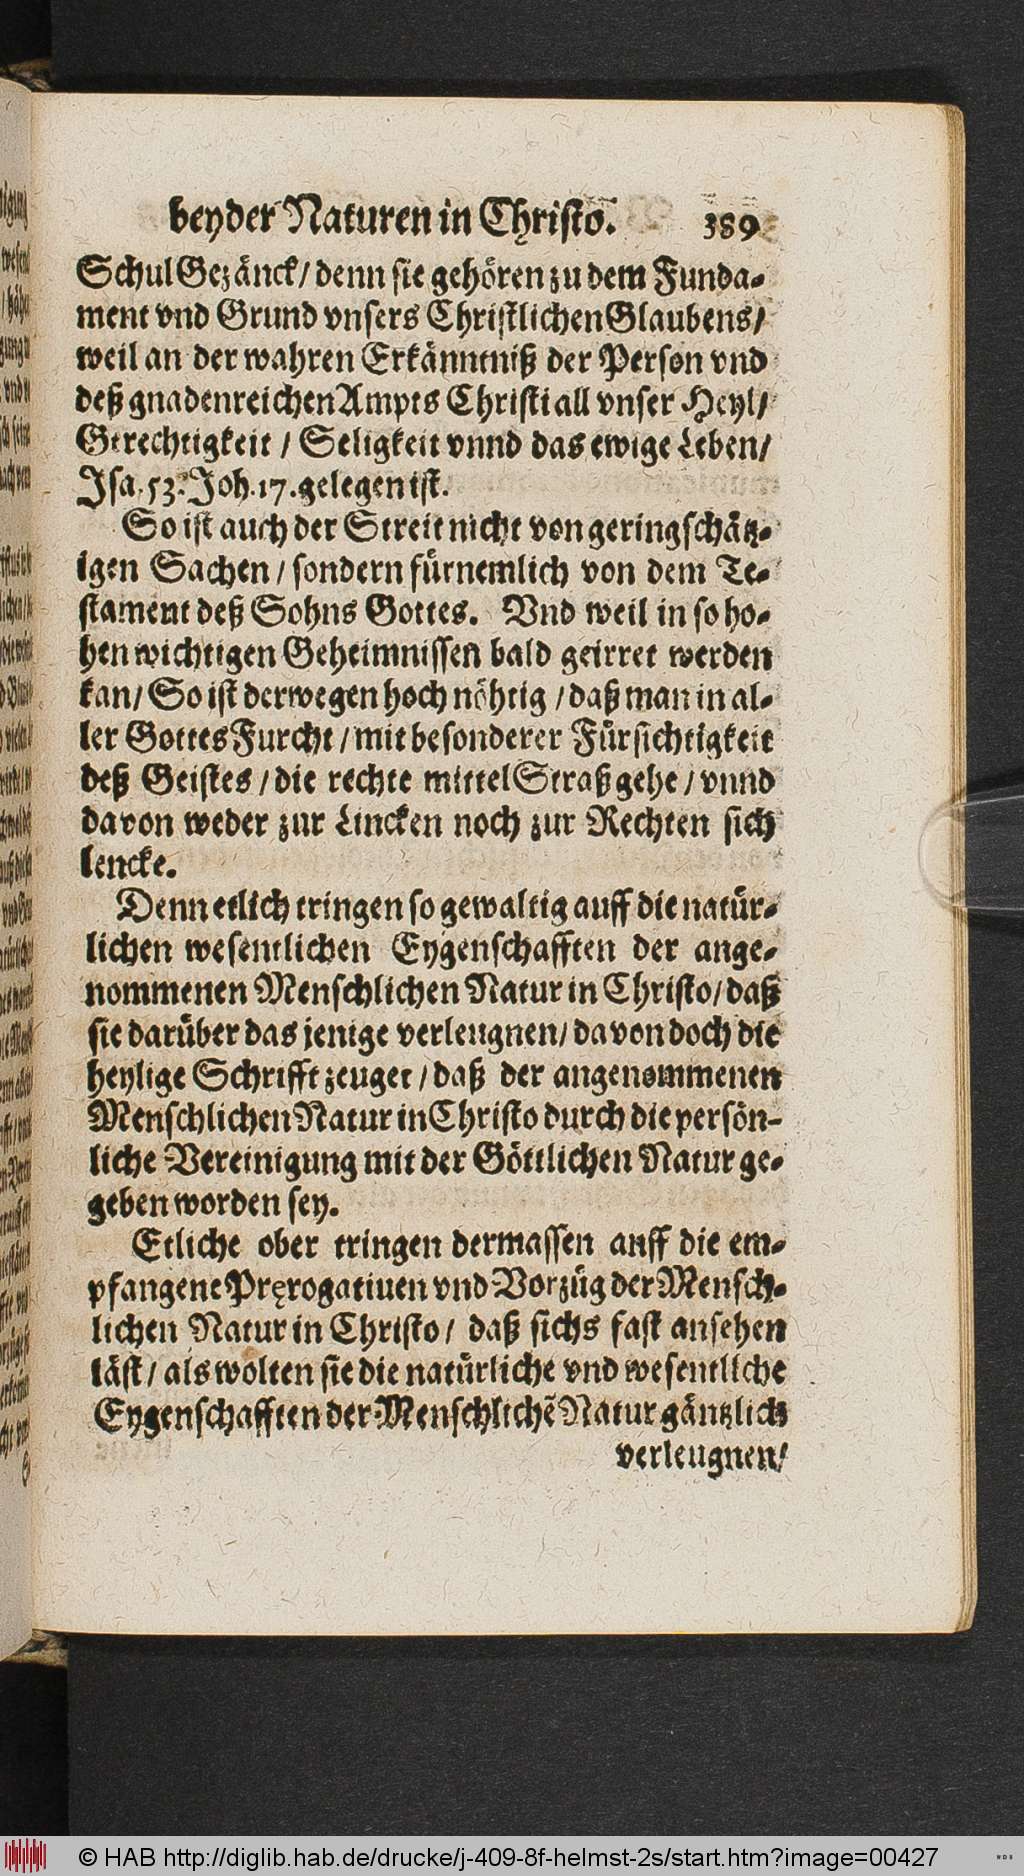 beyder Naturen in Christo. 389
Schul Gezänck / denn sie gehören zu dem Funda-
ment vnd Grund vnsers Christlichen Glaubens /
weil an der wahren Erkänntniß der Person vnd
deß gnadenreichen Ampts Christi all vnser Heyl /
Gerechtigkeit / Seligkeit vnnd das ewige Leben /
Isa. 53. Joh. 17. gelegen ist.
So ist auch der Streit nicht von geringschätz-
igen Sachen / sondern fürnemlich von dem Te-
stament deß Sohns Gottes. Vnd weil in so ho-
hen wichtigen Geheimnissen bald geirret werden
kan / So ist derwegen hoch nöhtig / daß man in al-
ler Gottes Furcht / mit besonderer Fürsichtigkeit
deß Geistes / die rechte mittel Straß gehe / vnnd
davon weder zur Lincken noch zur Rechten sich
lencke.
Denn etlich tringen so gewaltig auff die natür-
lichen wesentlichen Eygenschafften der ange-
nommenen Menschlichen Natur in Christo / daß
sie darüber das jenige verleugnen / davon doch die
heylige Schrifft zeuget / daß der angenommenen
Menschlichen Natur in Christo durch die persön-
liche Vereinigung mit der Göttlichen Natur ge-
geben worden sey.
Etliche ober tringen dermassen auff die em-
pfangene Pręrogatiuen vnd Vorzüg der Mensch-
lichen Natur in Christo / daß sichs fast ansehen
läst / als wolten sie die natürliche vnd wesentliche
Eygenschafften der Menschlichē Natur gäntzlich
verleugnen /
© HAB http://diglib.hab.de/drucke/j-409-8f-helmst-2s/start.htm?image=00427